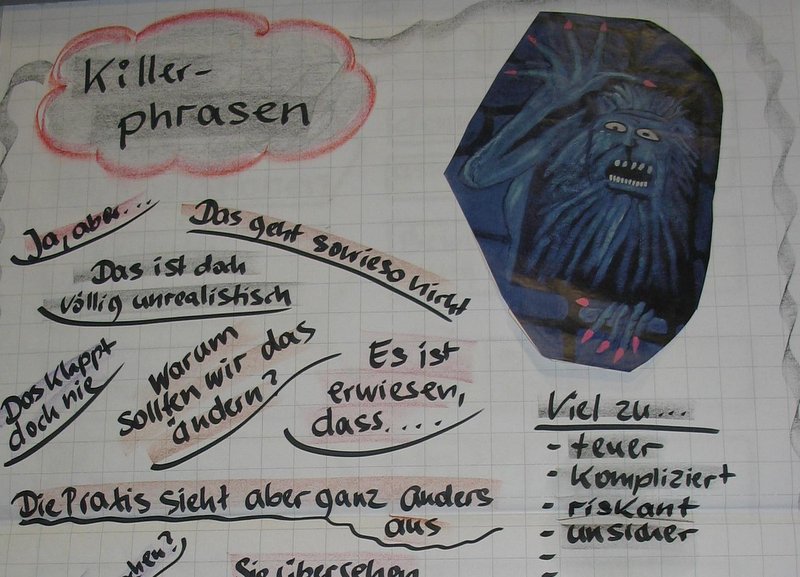 Killer-
phrasen
Ja, aber...
Das geht sowieso nicht
Das ist doch
völlig unrealistisch
Das klappt
doch nie
Warum
sollten wir das
ändern?
Es ist
erwiesen,
dass....
Viel zu...
- teuer
- kompliziert
- riskant
- unsicher
-
-
Die Praxis sieht aber ganz anders
aus
Sie übersehen